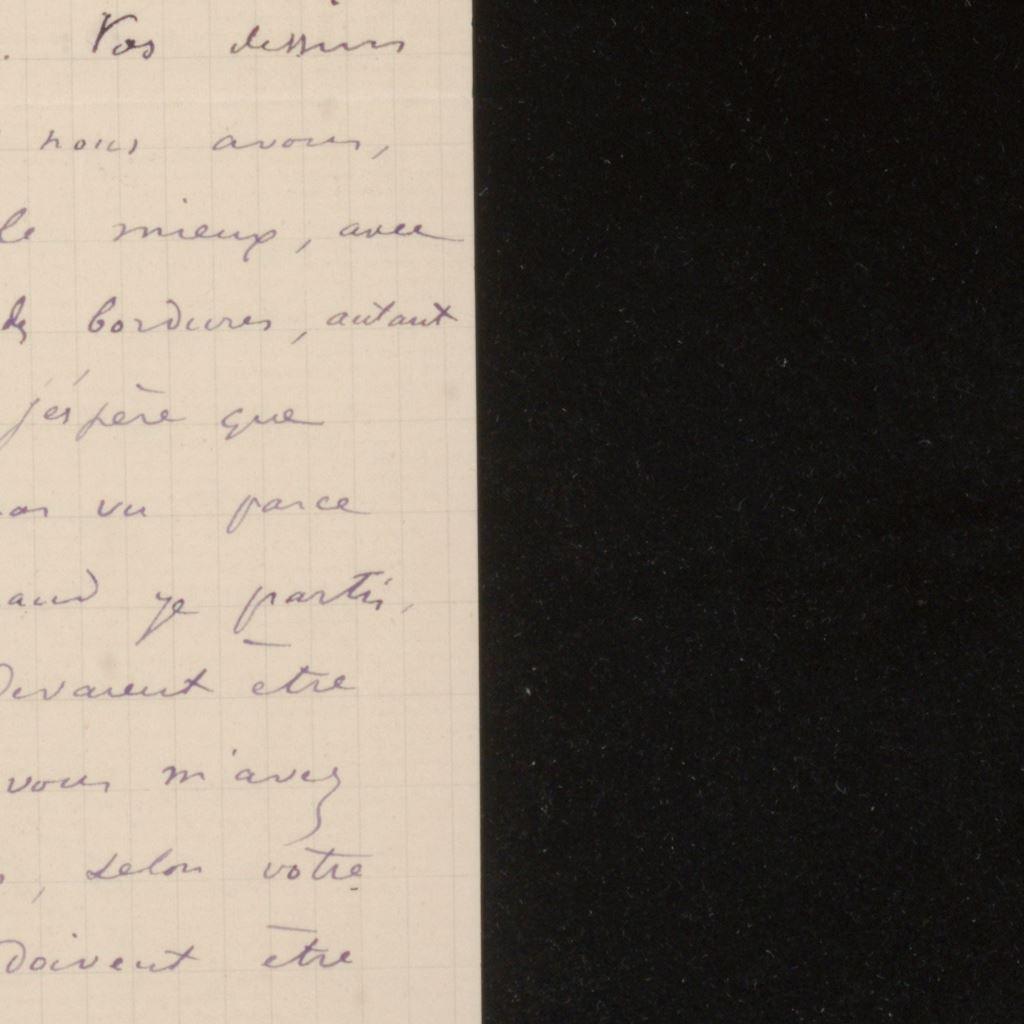 . Vos dessins
nous avons,
le mieux, avec
des bordures, autant
j'éspère que
pas vu parce
je partis.
devaient être
vous m'avez
, selon votre
doivent être